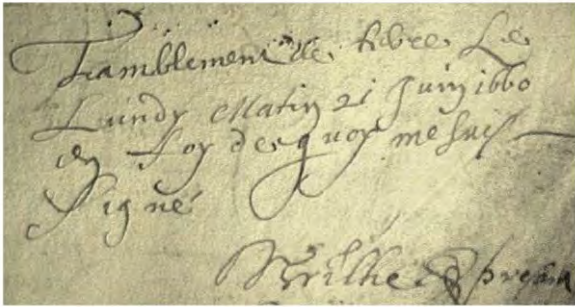 Tramblement de terre Le
Lundy Matin 21 Juin 1660
en foy desquoy me suis
Signé